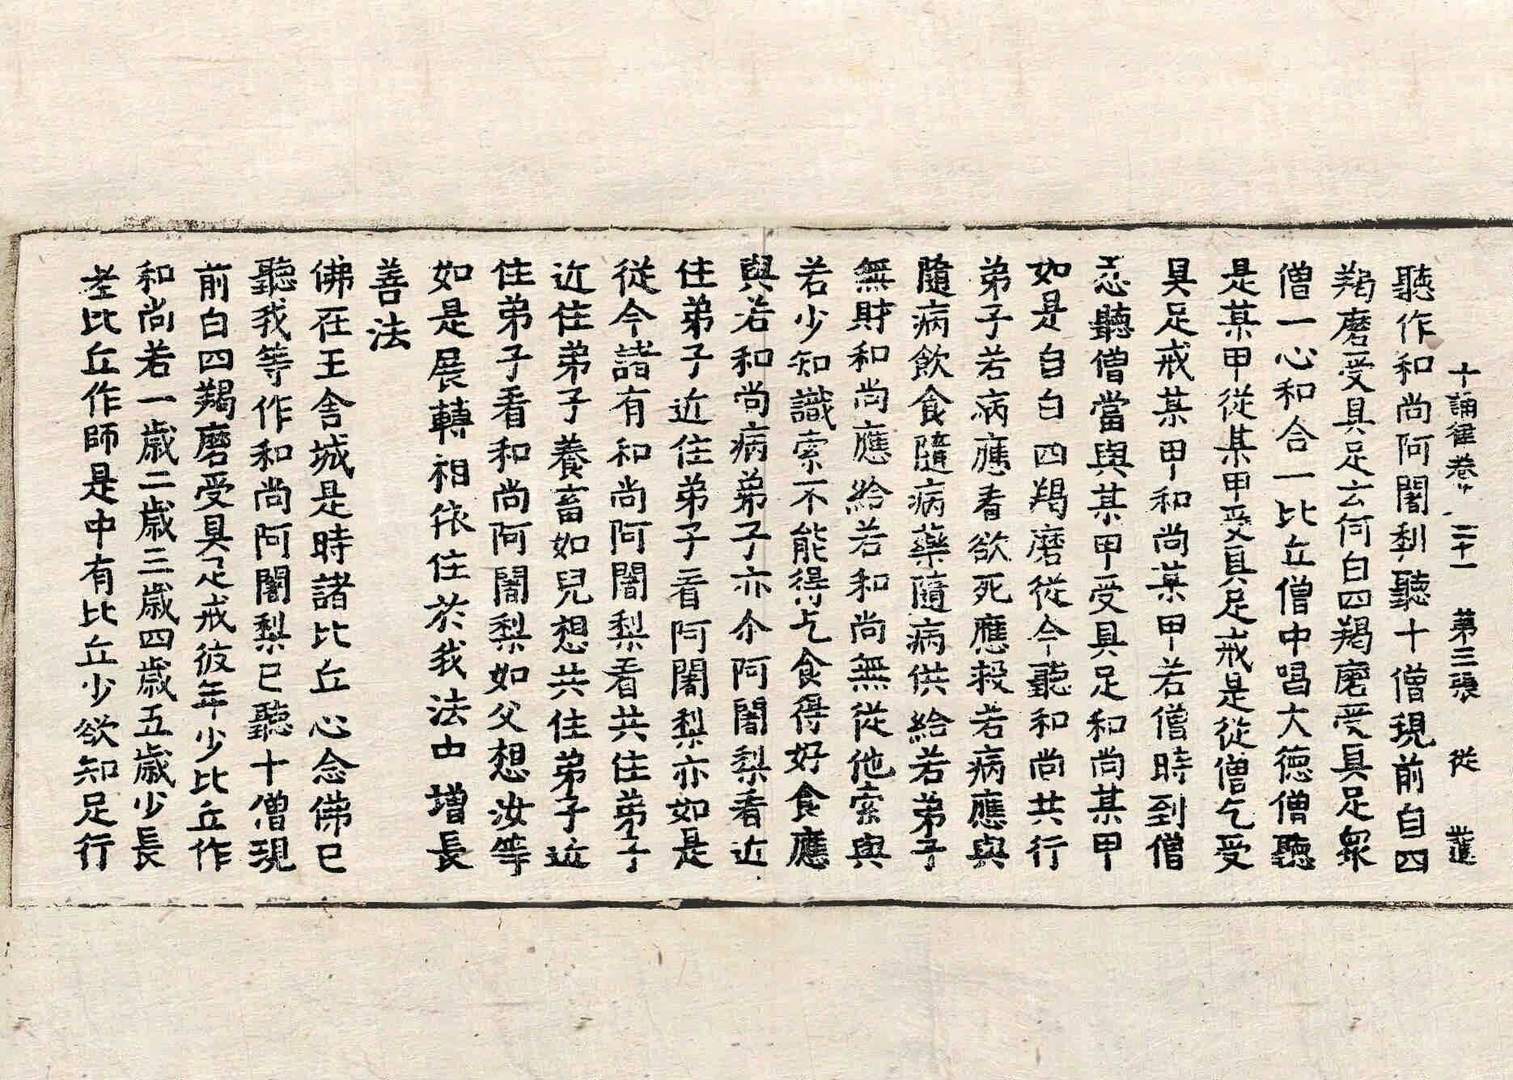 十誦律卷 二十一 第三張 從
聽作和尚阿闍梨聽十僧現前白四
羯磨受具足云何白四羯磨受具足眾
僧一心和合一比丘僧中唱大德僧聽
是某甲從某甲受具足戒是從僧乞受
具足戒某甲和尚某甲若僧時到僧
忍聽僧當與某甲受具足和尚某甲
如是白白四羯磨從今聽和尚共行
弟子若病應看欲死應救若病應與
隨病飲食隨病藥隨病供給若弟子
無財和尚應給若和尚無從他索與
若少知識索不能得乞食得好食應
與若和尚病弟子亦尒阿闍梨看近
住弟子近住弟子看阿闍梨亦如是
從今諸有和尚阿闍梨看共住弟子
近住弟子養畜如兒想共住弟子近
住弟子看和尚阿闍梨如父想汝等
如是展轉相依住於我法中增長
善法
佛在王舍城是時諸比丘心念佛已
聽我等作和尚阿闍梨已聽十僧現
前白四羯磨受具足戒彼年少比丘作
和尚若一歲二歲三歲四歲五歲少長
老比丘作師是中有比丘少欲知足行